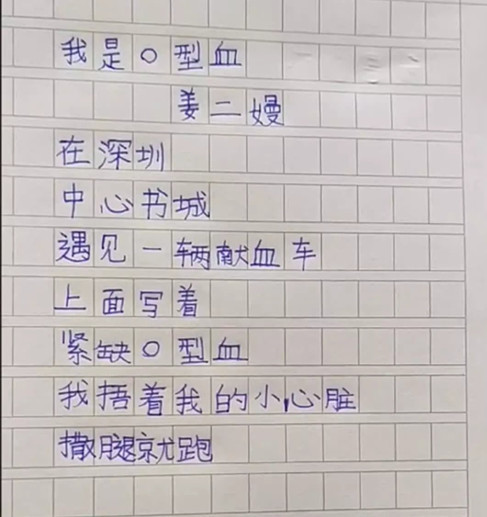 我是O型血
姜二嫚
在深圳
中心书城
遇见一辆献血车
上面写着
紧缺O型血
我捂着我的小心脏
撒腿就跑